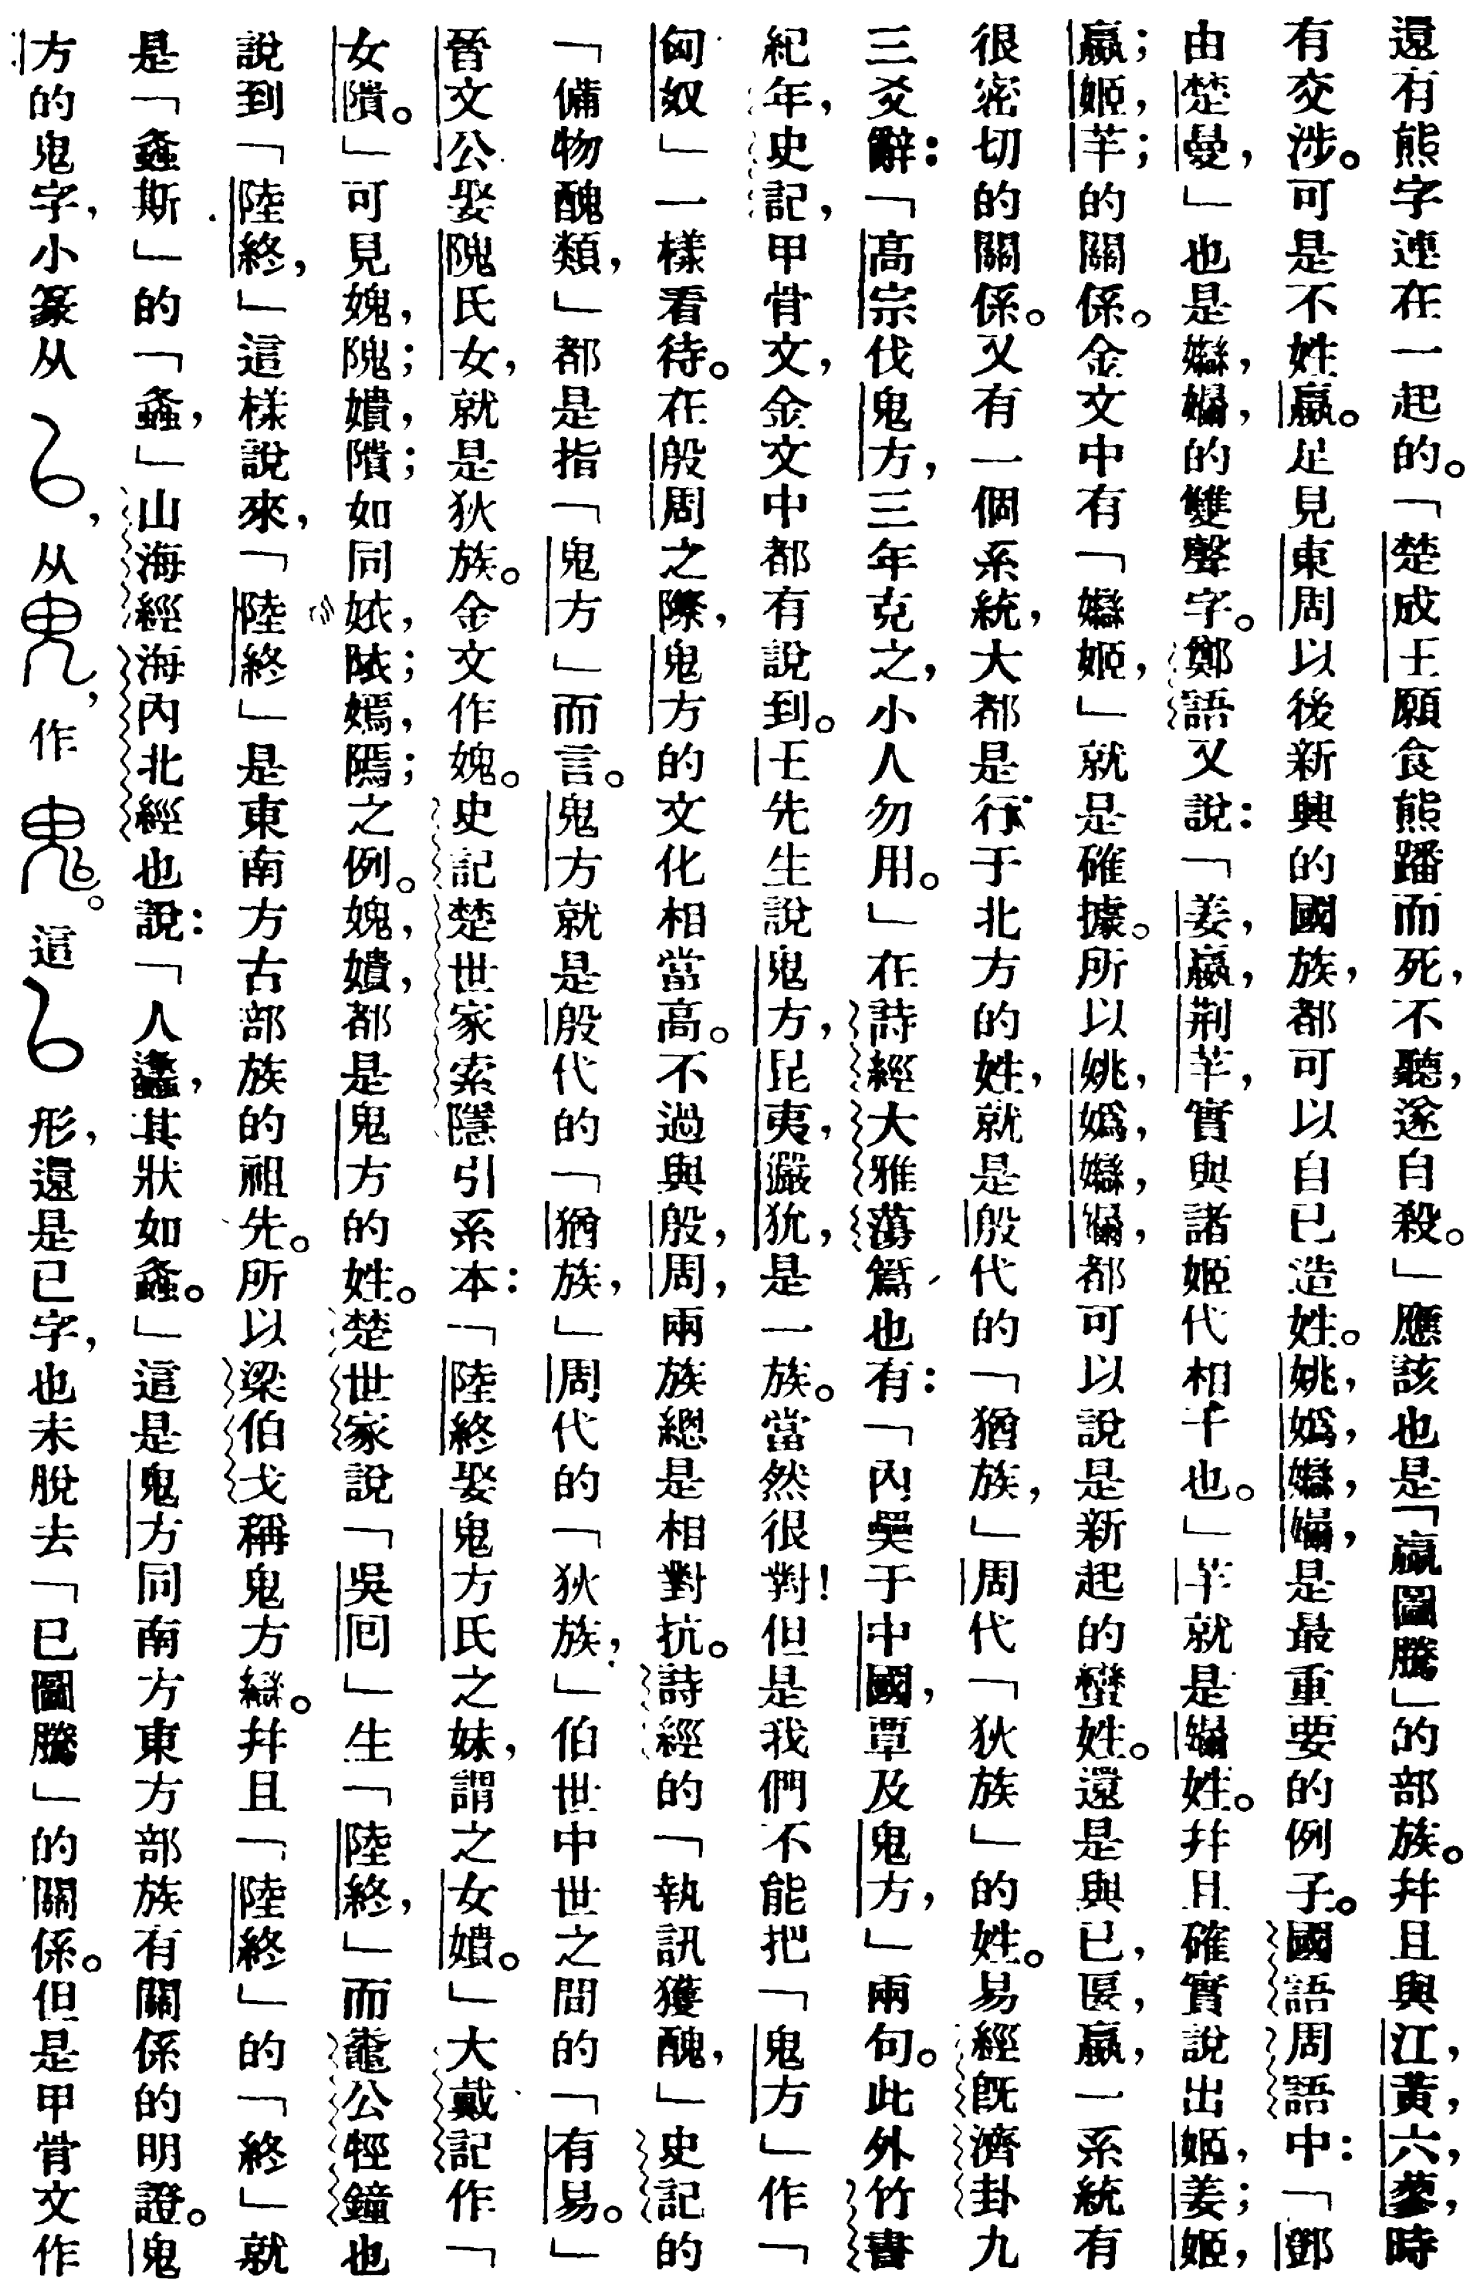 還有熊字連在一起的。「楚成王願食熊蹯而死，不聽，遂自殺。」應該也是「嬴圖騰」的部族。幷且與江，黃，六，蓼，時
有交涉。可是不姓嬴。足見東周以後新興的國族，都可以自已造姓。姚，嬀，是最重要的例子。國語周語中：「鄧
由楚曼，」也是的雙聲字。鄭語又說：「姜，嬴，荆芈，實與諸姬代相干也。」芈就是姓。幷且確實說出姬，姜；姬，
嬴；姬，芈；的關係。金文中有「姬，」就是確據。所以姚，嬀，都可以說是新起的蠻姓。還是與已，匽，嬴，一系統有
很密切的關係。又有一個系統，大都是行于北方的姓，就是殷代的「猶族，」周代「狄族」的姓。易經旣濟卦九
三爻辭：「高宗伐鬼方，三年克之，小人勿用。」在詩經大雅蕩篇也有：「內奰于中國，覃及鬼方，」兩句。此外竹書
紀年，史記，甲骨文，金文中都有說到。王先生說鬼方，昆夷，玁狁，是一族。當然很對！但是我們不能把「鬼方」作「
匈奴」一樣看待。在殷周之際，鬼方的文化相當高。不過與殷，周，兩族總是相對抗。詩經的「執訊獲醜，」史記的
「備物醜類，」都是指「鬼方」而言。鬼方就是殷代的「猶族，」周代的「狄族，」伯世中世之間的「有易。」
晉文公娶隗氏女，就是狄族。金文作媿。史記楚世家索隱引系本：「陸終娶鬼方氏之妹，謂之女嬇。」大戴記作「
女隤。」可見媿，隗；嬇，隤；如同㛄，陓；嫣，隔；之例。媿，嬇，都是鬼方的姓。楚世家說「吳回」生「陸終，」而鼄公牼鐘也
說到「陸終，」這樣說來，「陸終」是東南方古部族的祖先。所以梁伯戈稱鬼方䜌。幷且「陸終」的「終」就
是「螽斯」的「螽，」山海經海內北經也說：「人蠭，其狀如螽。」這是鬼方同南方東方部族有關係的明證。鬼
方的鬼字，小篆从，从，作。這形，還是已字，也未脫去「已圖騰」的關係。但是甲骨文作